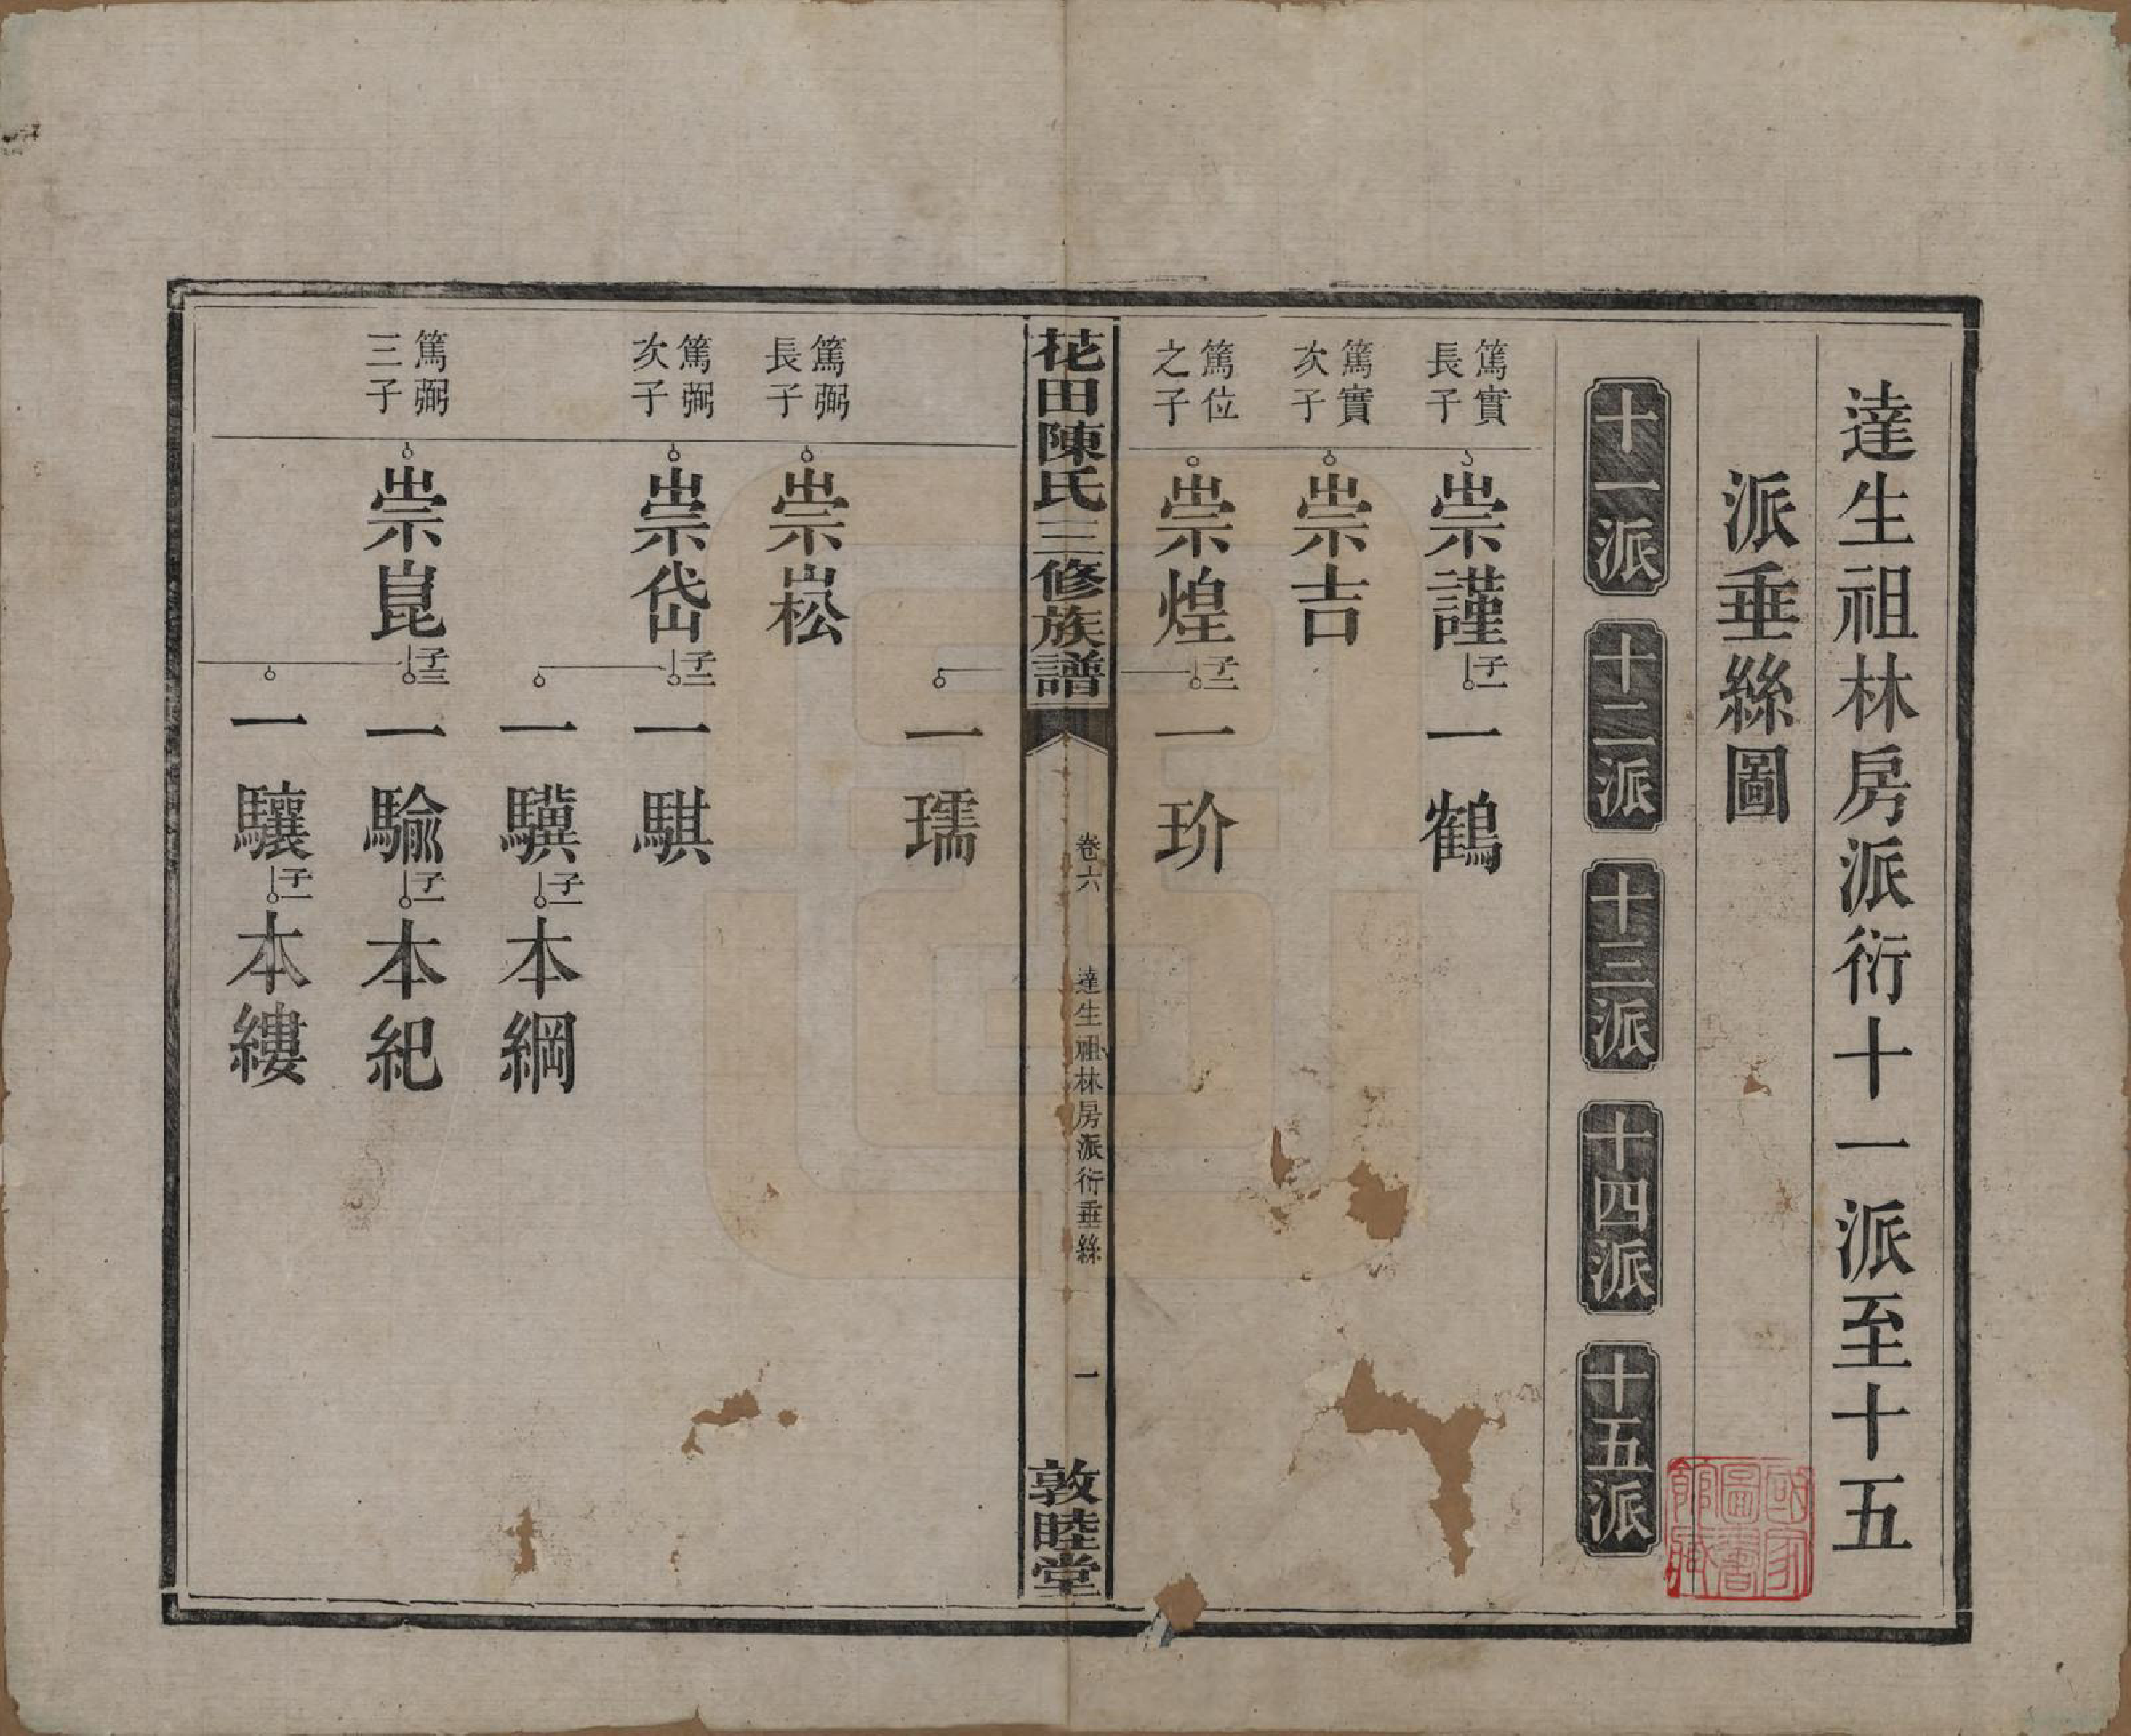 達生祖林房派衍十一派至十五
派垂絲圖
十一派 十二派 十三派 十四派 十五派
篤實
長子
崇謹 子一 一鶴
篤實
次子
崇吉
篤位
之子
崇煌 子二 一玠
花田陳氏三修族譜 卷六 達生祖林房派衍垂絲 一 敦睦堂
一瓀
篤弼
長子
崇崧
篤弼
次子
崇岱 子二 一騏
一驥 子一 本綱
篤弼
三子
崇崑 子二 一騟 子一 本紀
一驤 子一 本縷
國家
圖書
館藏